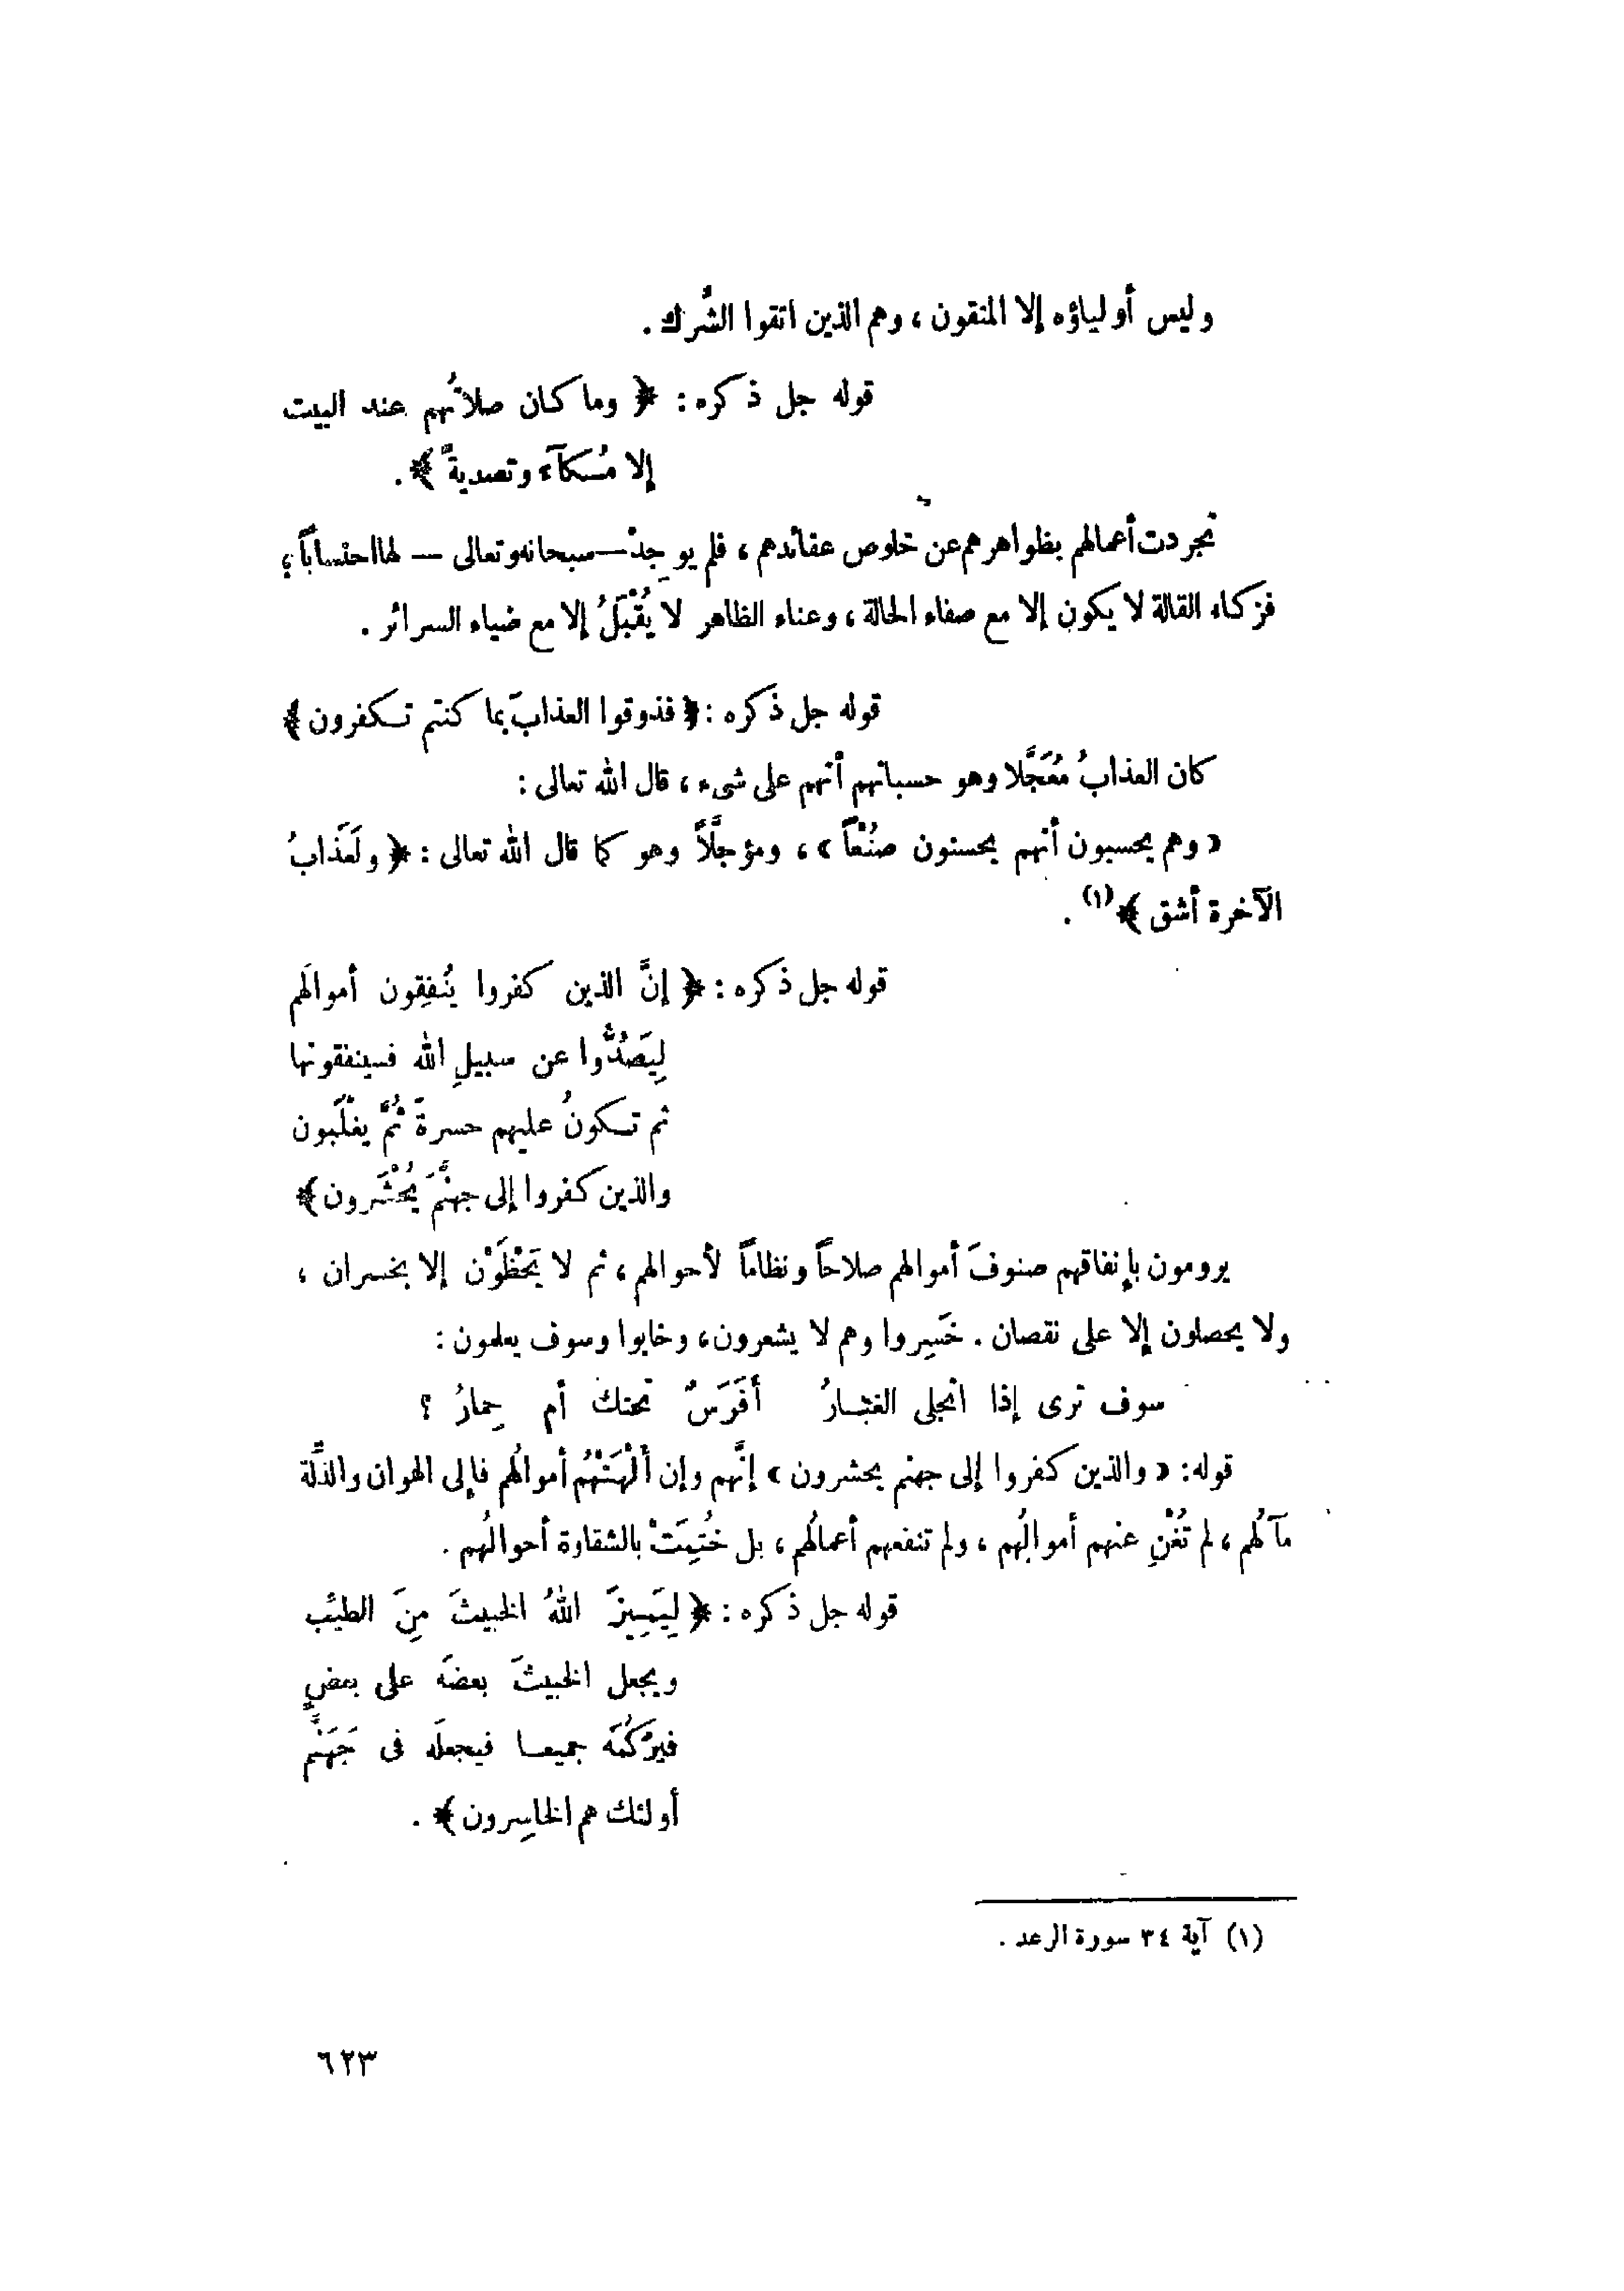 وليس أولياؤه إلا المتقون ، وهم الذين اتقوا الشِّرك .
قوله جل ذكره : ﴿ وما كان صلاتُهم عند البيت
إلا مُكآء وتصديةً ﴾ .
تجردت أعمالهم بظواهرهم عن خلوص عقائدهم ، فلم يوجدْ — سبحانه وتعالى — لها احتساباً ؛
فزكاء القالة لا يكون إلا مع صفاء الحالة ، وعناء الظاهر لا يُقْبَلُ إلا مع ضياء السرائر .
قوله جل ذكره : ﴿ فذوقوا العذابَ بما كنتم تكفرون ﴾
كان العذابُ مُعَجَّلا وهو حسبانهم أنهم على شىء ، قال الله تعالى :
« وهم يحسبون أنهم يحسنون صُنْعاً » ، ومؤجلَّاً وهو كما قال الله تعالى : ﴿ ولَعَذابُ
الآخرة أشق ﴾ (١) .
قوله جل ذكره : ﴿ إنَّ الذين كفروا يُنفِقون أموالَهم
لِيَصُدُّوا عن سبيلِ الله فسينفقونها
ثم تكونُ عليهم حسرةً ثُمَّ يغْلَبون
والذين كفروا إلى جهنَّمَ يُحْشَرون ﴾
يرومون بإنفاقهم صنوفَ أموالهم صلاحاً ونظاماً لأحوالهم ، ثم لا يَحْظَوْن إلا بخسران ،
ولا يحصلون إلا على نقصان . خَسِروا وهم لا يشعرون ، وخابوا وسوف يعلمون :
سوف ترى إذا انجلى الغبارُ أفَرَسٌ تحتك أم حِمارُ ؟
قوله : « والذين كفروا إلى جهنم يحشرون » إنَّهم وإن أَلْهَتْهُم أموالُهم فإلى الهوان والذلَّة
مآلُهم ، لم تُغْنِ عنهم أموالُهم ، ولم تنفعهم أعمالُهم ، بل خُتِمَتْ بالشقاوة أحوالُهم .
قوله جل ذكره : ﴿ لِيَمِيزَ اللهُ الخبيثَ مِنَ الطيِّب
ويجعل الخبيثَ بعضَه على بعضٍ
فيَرْكُمَه جميعا فيجعلَه فى جَهَنَّم
أولئك هم الخاسِرون ﴾ .
(١) آية ٣٤ سورة الرعد .
٦٢٣